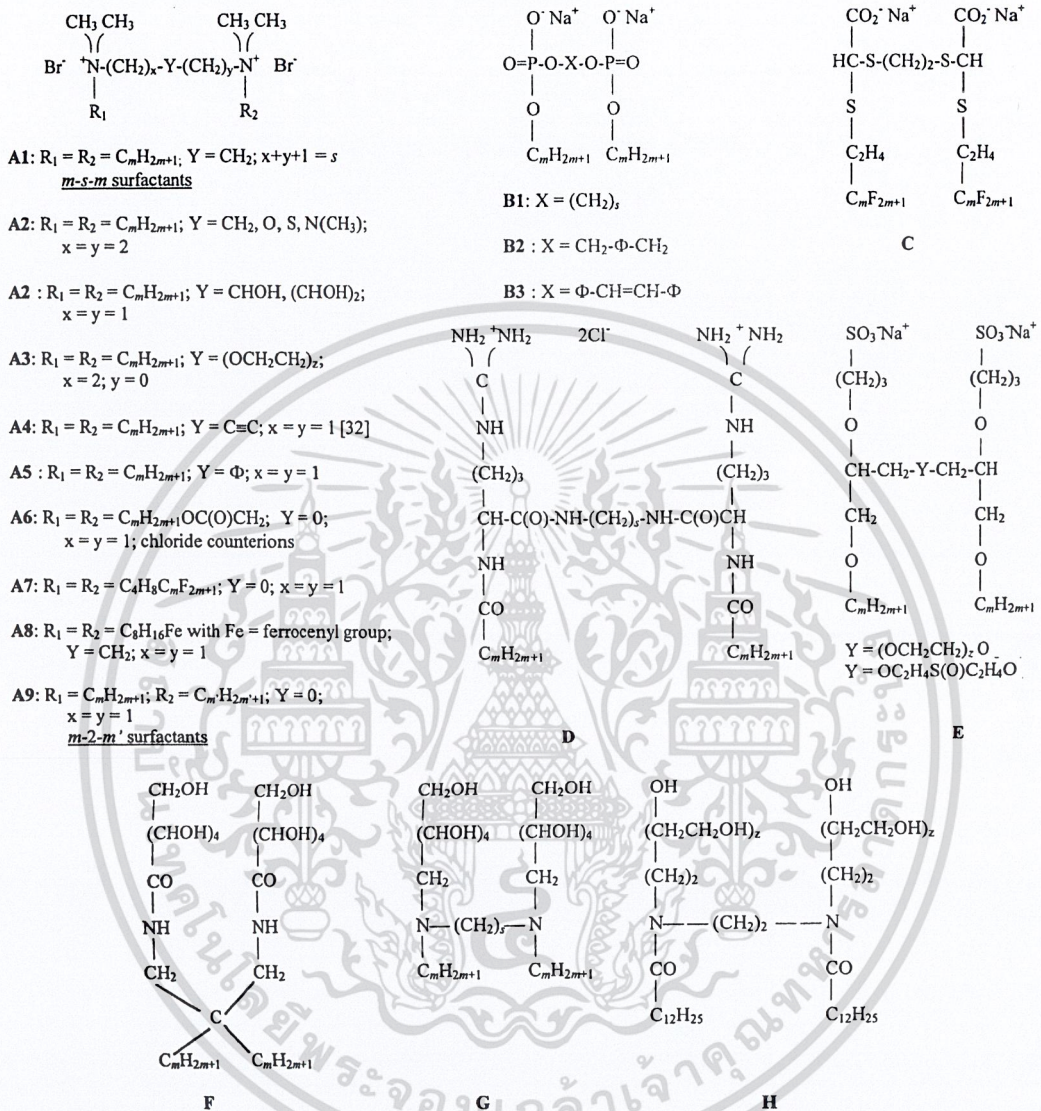 CH₃ CH₃ CH₃ CH₃
Br⁻ ⁺N-(CH₂)ₓ-Y-(CH₂)ᵧ-N⁺ Br⁻
R₁ R₂
A1: R₁ = R₂ = CₘH₂ₘ₊₁; Y = CH₂; x+y+1 = s
m-s-m surfactants
A2: R₁ = R₂ = CₘH₂ₘ₊₁; Y = CH₂, O, S, N(CH₃);
x = y = 2
A2 : R₁ = R₂ = CₘH₂ₘ₊₁; Y = CHOH, (CHOH)₂;
x = y = 1
A3: R₁ = R₂ = CₘH₂ₘ₊₁; Y = (OCH₂CH₂)z;
x = 2; y = 0
A4: R₁ = R₂ = CₘH₂ₘ₊₁; Y = C≡C; x = y = 1 [32]
A5 : R₁ = R₂ = CₘH₂ₘ₊₁; Y = Φ; x = y = 1
A6: R₁ = R₂ = CₘH₂ₘ₊₁OC(O)CH₂; Y = 0;
x = y = 1; chloride counterions
A7: R₁ = R₂ = C₄H₈CₘF₂ₘ₊₁; Y = 0; x = y = 1
A8: R₁ = R₂ = C₈H₁₆Fe with Fe = ferrocenyl group;
Y = CH₂; x = y = 1
A9: R₁ = CₘH₂ₘ₊₁; R₂ = Cₘ'H₂ₘ'₊₁; Y = 0;
x = y = 1
m-2-m' surfactants
O⁻ Na⁺ O⁻ Na⁺
O=P-O-X-O-P=O
O O
CₘH₂ₘ₊₁ CₘH₂ₘ₊₁
B1: X = (CH₂)ₛ
B2 : X = CH₂-Φ-CH₂
B3 : X = Φ-CH=CH-Φ
CO₂⁻ Na⁺ CO₂⁻ Na⁺
HC-S-(CH₂)₂-S-CH
S S
C₂H₄ C₂H₄
CₘF₂ₘ₊₁ CₘF₂ₘ₊₁
C
NH₂ ⁺NH₂ 2Cl⁻ NH₂ ⁺ NH₂
C C
NH NH
(CH₂)₃ (CH₂)₃
CH-C(O)-NH-(CH₂)ₛ-NH-C(O)CH
NH NH
CO CO
CₘH₂ₘ₊₁ CₘH₂ₘ₊₁
D
SO₃⁻Na⁺ SO₃⁻Na⁺
(CH₂)₃ (CH₂)₃
O O
CH-CH₂-Y-CH₂-CH
CH₂ CH₂
O O
CₘH₂ₘ₊₁ CₘH₂ₘ₊₁
Y = (OCH₂CH₂)z O
Y = OC₂H₄S(O)C₂H₄O
E
CH₂OH CH₂OH
(CHOH)₄ (CHOH)₄
CO CO
NH NH
CH₂ CH₂
C
CₘH₂ₘ₊₁ CₘH₂ₘ₊₁
F
CH₂OH CH₂OH
(CHOH)₄ (CHOH)₄
CH₂ CH₂
N—(CH₂)ₛ—N
CₘH₂ₘ₊₁ CₘH₂ₘ₊₁
G
OH OH
(CH₂CH₂OH)z (CH₂CH₂OH)z
(CH₂)₂ (CH₂)₂
N———(CH₂)₂———N
CO CO
C₁₂H₂₅ C₁₂H₂₅
H
สถาบันเทคโนโลยีพระจอมเกล้าเจ้าคุณทหารลาดกระบัง